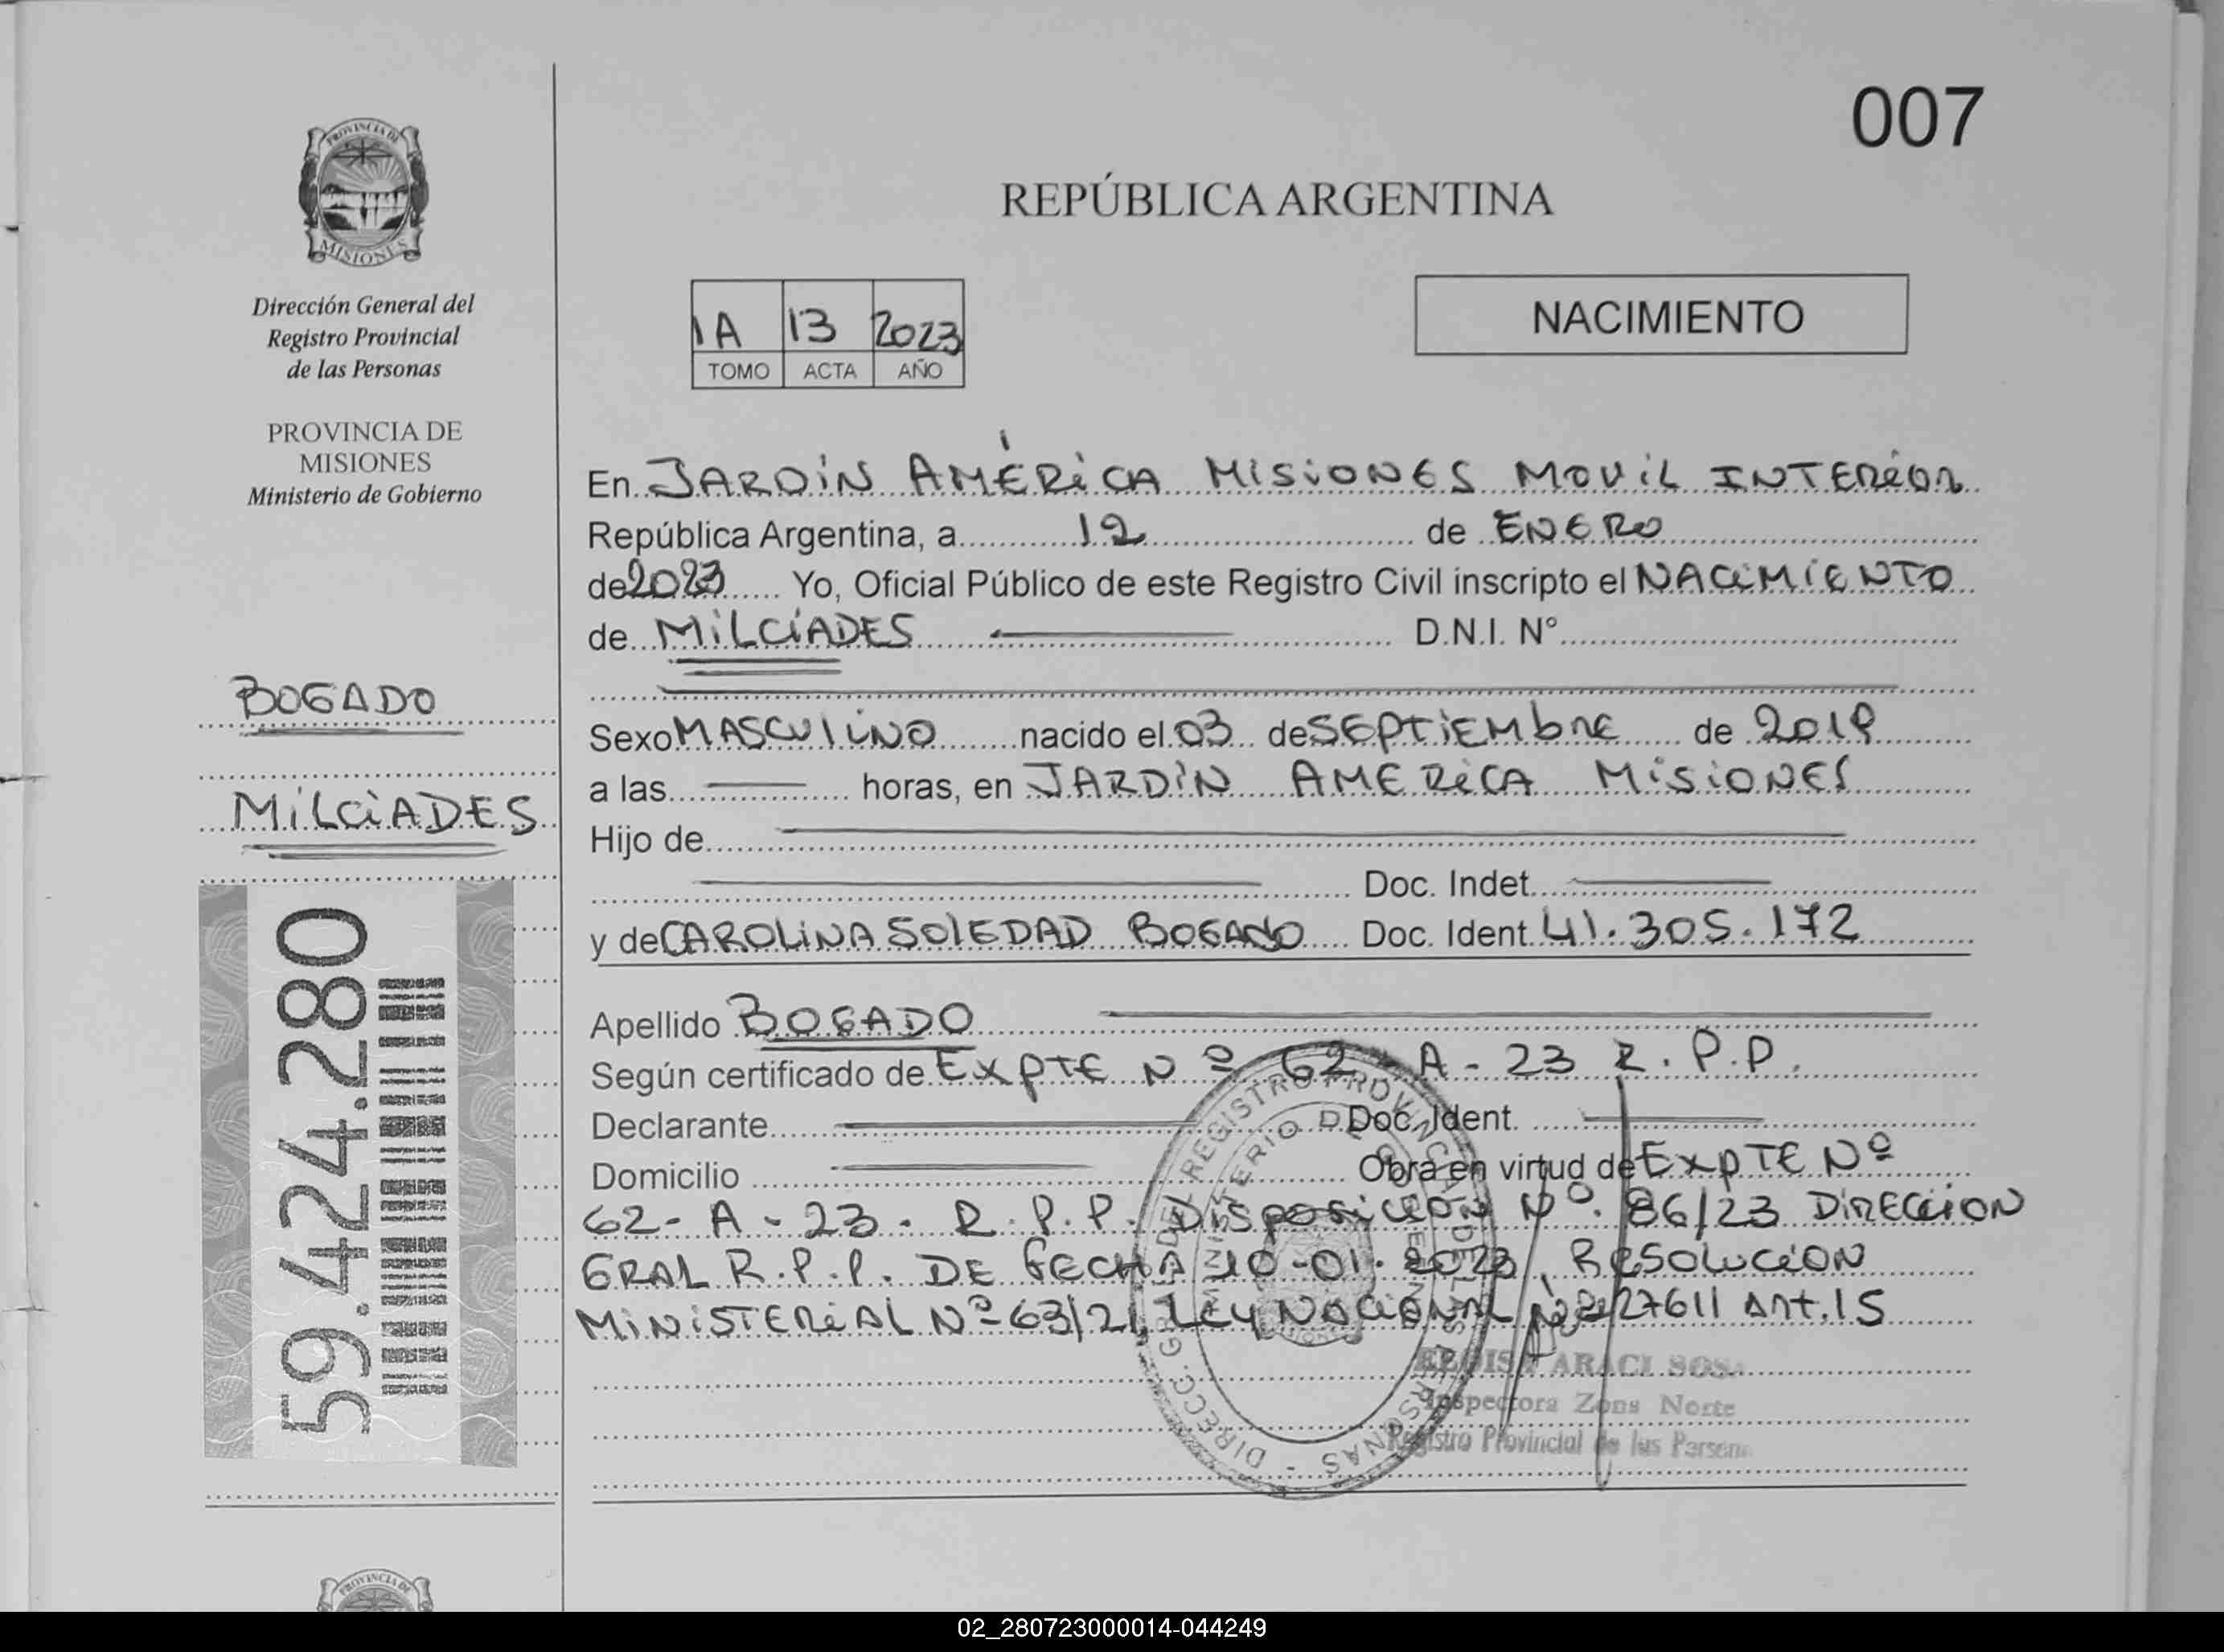 007
PROVINCIA DE
MISIONES
REPÚBLICA ARGENTINA
Dirección General del
Registro Provincial
de las Personas
PROVINCIA DE
MISIONES
Ministerio de Gobierno
1A 13 2023
TOMO ACTA AÑO
NACIMIENTO
En JARDÍN AMÉRICA MISIONES MOVIL INTERIOR
República Argentina, a 12 de ENERO
de 2023 Yo, Oficial Público de este Registro Civil inscripto el NACIMIENTO
de MILCÍADES D.N.I. N°
BOGADO
Sexo MASCULINO nacido el 03 de SEPTIEMBRE de 2019
a las horas, en JARDÍN AMERICA MISIONES
MILCIADES
Hijo de
Doc. Indet.
y de CAROLINA SOLEDAD BOGADO Doc. Ident. 41.305.172
59.424.280
Apellido BOGADO
Según certificado de EXPTE Nº 62-A-23 R.P.P.
Declarante Doc. Ident.
Domicilio Obra en virtud de EXPTE Nº
62-A-23-R.P.P. DISPOSICION Nº. 86/23 DIRECCION
GRAL R.P.P. DE FECHA 10-01-2023, RESOLUCION
MINISTERIAL Nº 63/21, LEY NACIONAL Nº 27611 ART. 15
DIRECC. GRAL DEL REGISTRO PROVINCIAL DE LAS PERSONAS -
MINISTERIO DE GOBIERNO
ARACI SOSA
Inspectora Zona Norte
Registro Provincial de las Persona
PROVINCIA DE
02_280723000014-044249